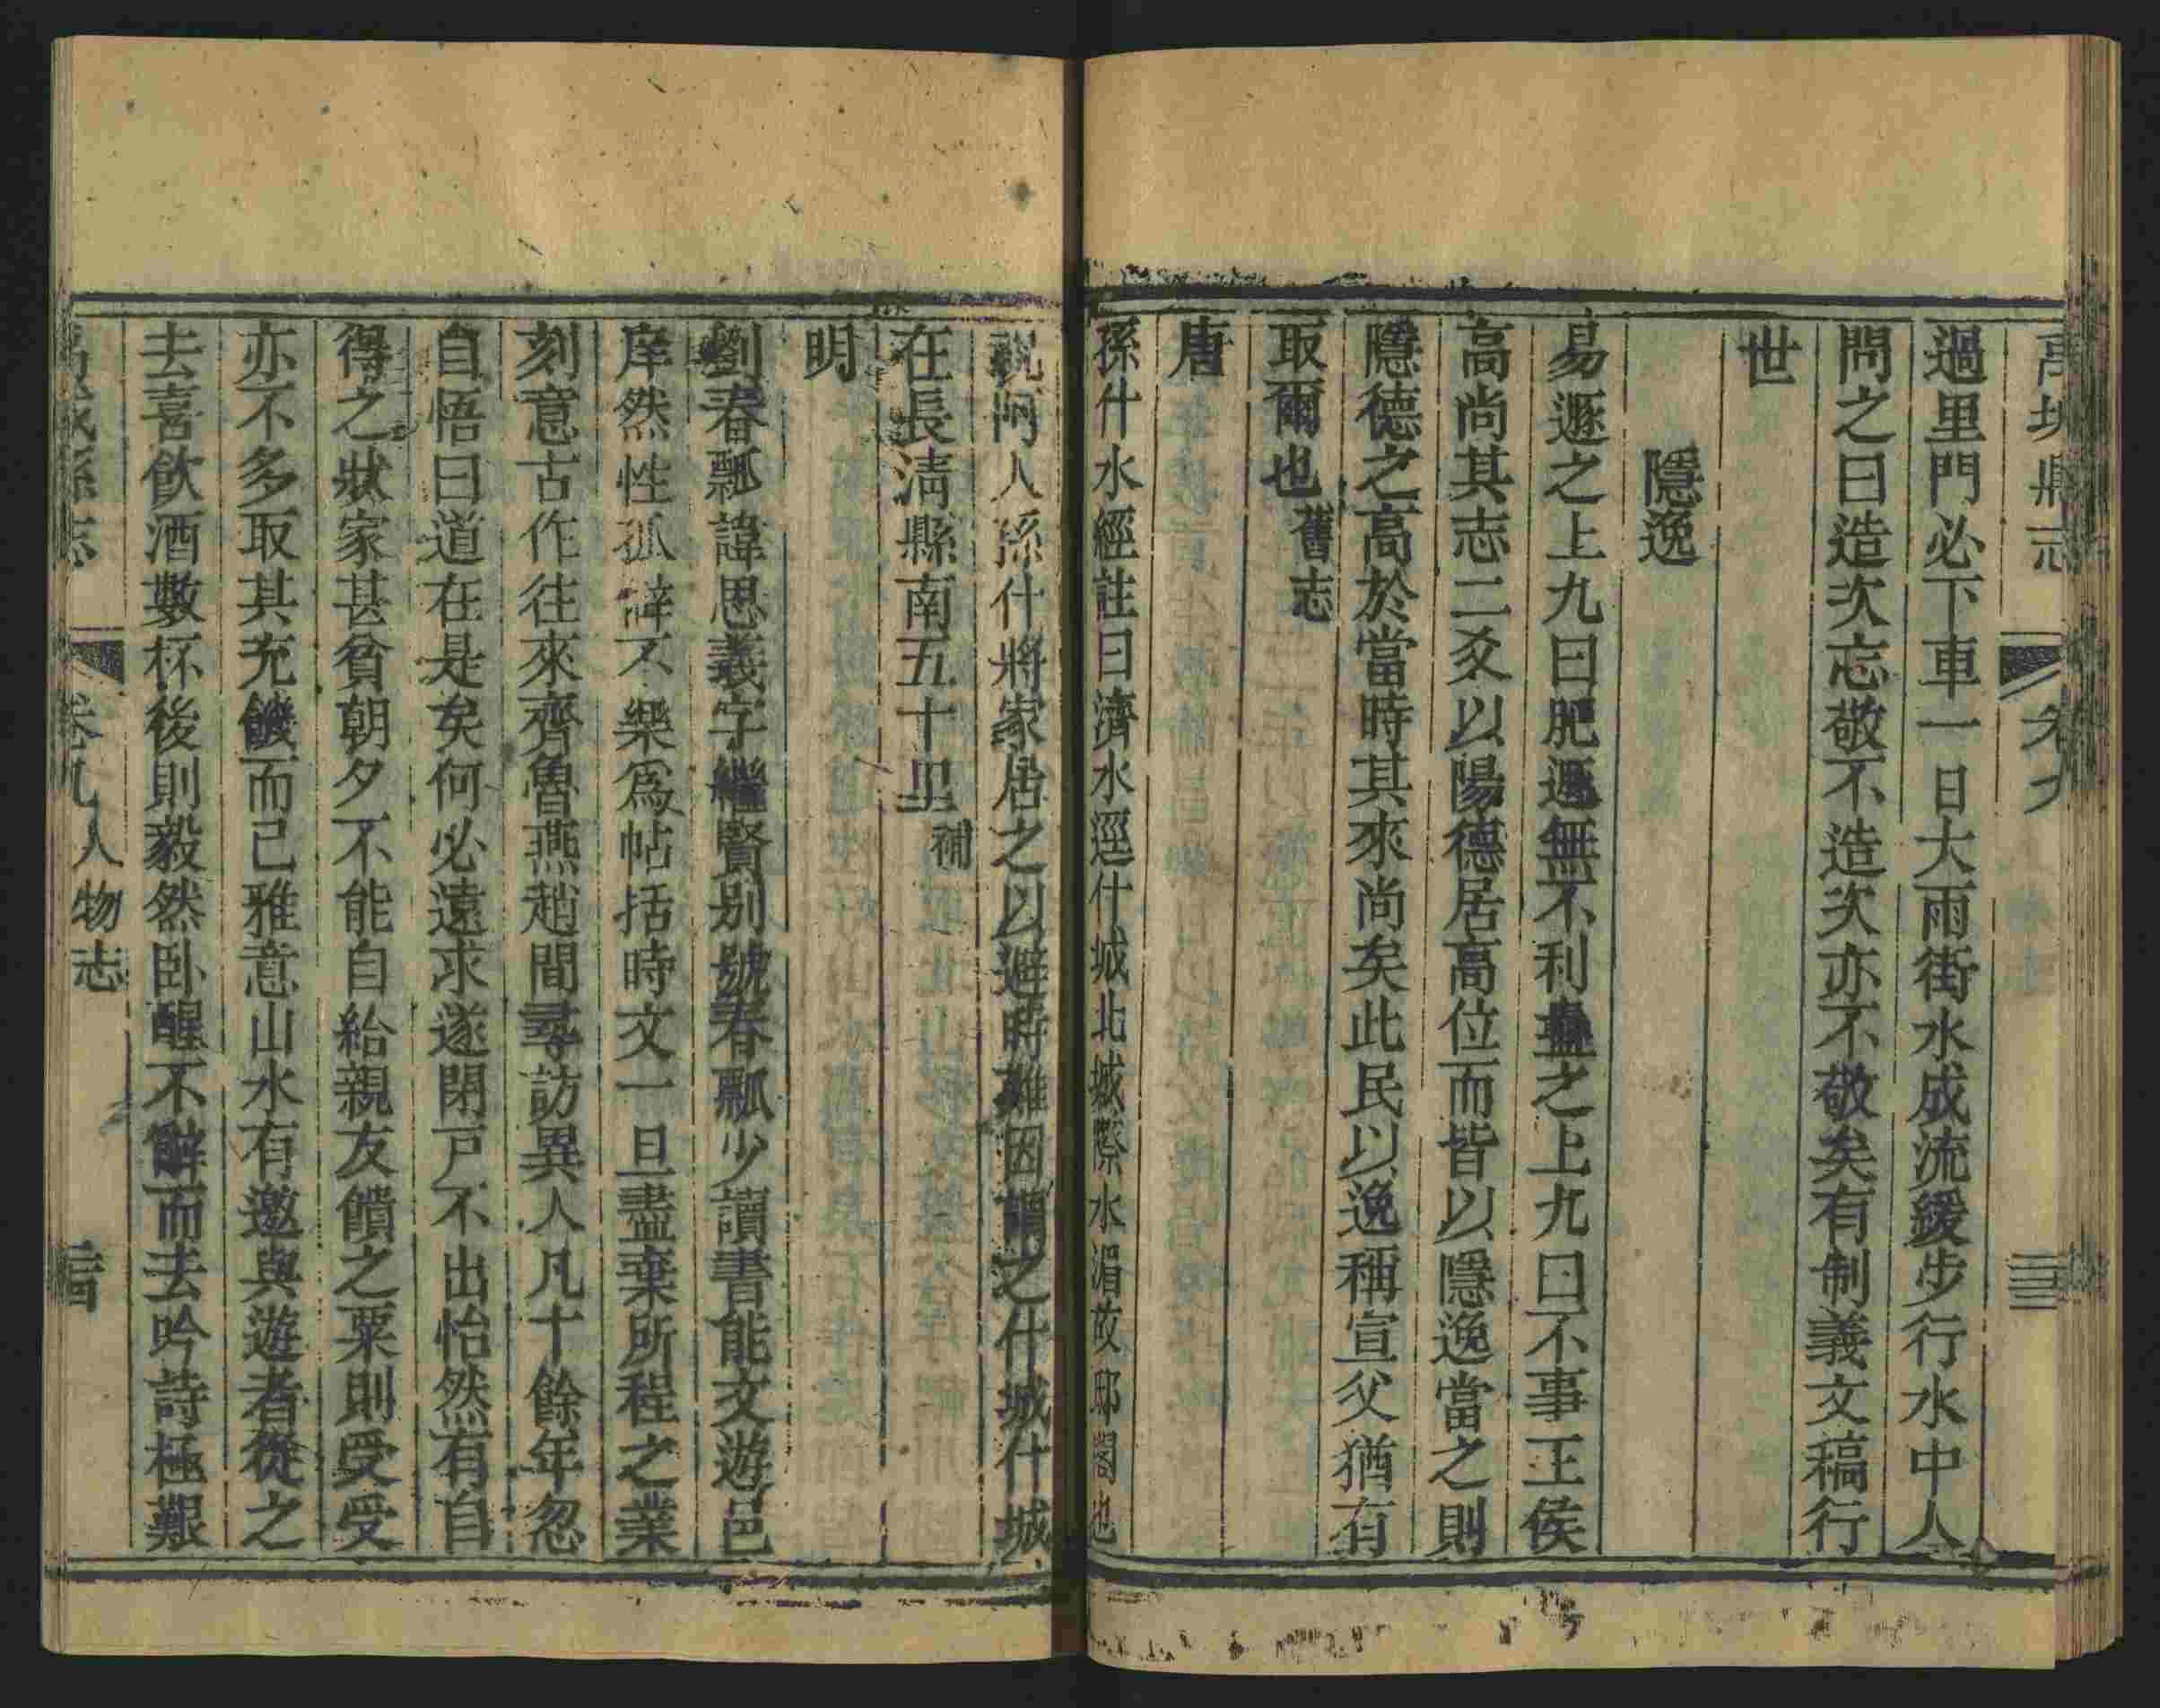 過里門必下車一日大雨街水成流緩步行水中人
問之曰造次忘敬不造次亦不敬矣有制義文稿行
世
隱逸
易遯之上九曰肥遯無不利蠱之上九曰不事王侯
高尚其志二爻以陽德居高位而皆以隱逸當之則
隱德之高於當時其來尚矣此民以逸稱宣父猶有
取爾也舊志
唐
孫什水經註曰濟水逕什城北城際水湄故邸閣也
祝阿人孫什將家居之以避時難因謂之什城什城
在長淸縣南五十里補
明
劉春瓢諱思義字繼賢別號春瓢少讀書能文遊邑
庠然性孤僻不樂爲帖括時文一旦盡棄所程之業
刻意古作往來齊魯燕趙間尋訪異人凡十餘年忽
自悟曰道在是矣何必遠求遂閉戸不出怡然有自
得之狀家甚貧朝夕不能自給親友饋之粟則受受
亦不多取其充饑而己雅意山水有邀與遊者從之
去喜飮酒數杯後則毅然卧醒不辭而去吟詩極艱
卷九人物志